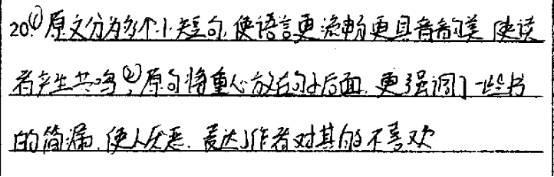 20①原文分为多个小短句,使语言更流畅更具音韵美,使读
者产生共鸣;②原句将重心放在句子后面,更强调了一些书
的简漏,使人厌恶,表达了作者对其的不喜欢